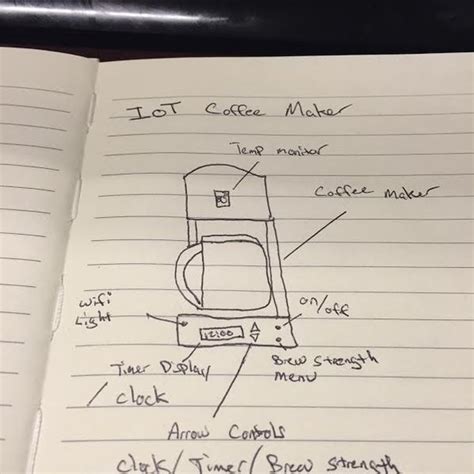 IoT Coffee Maker
Temp monitor
Coffee Maker
Wifi
Light
on/
off
12:00
Timer Display
/ clock
Brew Strength
Menu
Arrow Controls
Clock/Timer/Brew Strength